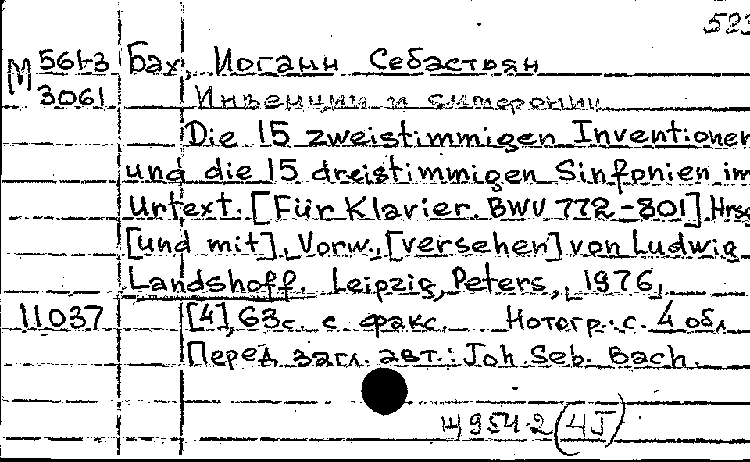 523
М 561-3 Бах, Иоганн Себастьян
3061 Инвенции и симфонии
Die 15 zweistimmigen Inventionen
und die 15 dreistimmigen Sinfonien im
Urtext. [Für Klavier. BWV 772-801] Hrsg
[und mit], Vorw., [versehen] von Ludwig
Landshoff. Leipzig, Peters, 1976.
11037 [4], 63 с. с факс. Нотогр.: с. 4 обл
Перед загл. авт.: Joh. Seb. Bach.
Щ 954-2 (4J)